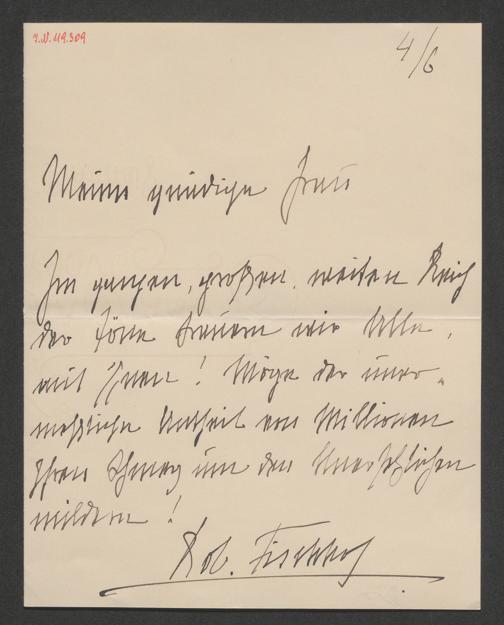 I.N. 119.309
4/6
Meine gnädige Frau
Im ganzen, großen, weiten Reich
der Töne trauern wir Alle,
mit Ihnen! Möge der uner-
meßliche Antheil von Millionen
Ihren Schmerz um den Unersetzlichen
mildern!
Rob. Fischhof